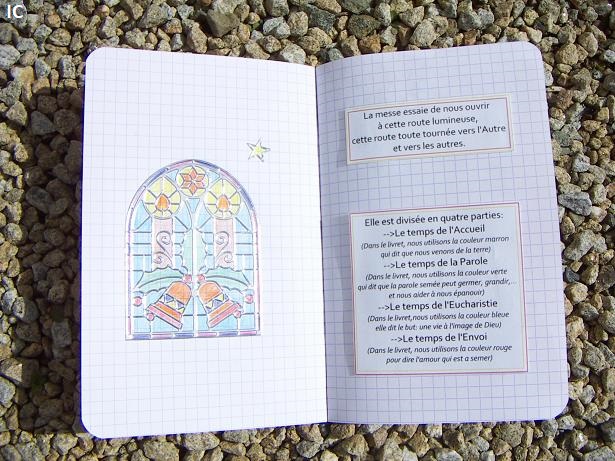 IC
La messe essaie de nous ouvrir
à cette route lumineuse,
cette route toute tournée vers l'Autre
et vers les autres.
Elle est divisée en quatre parties:
-->Le temps de l'Accueil
(Dans le livret, nous utilisons la couleur marron
qui dit que nous venons de la terre)
-->Le temps de la Parole
(Dans le livret, nous utilisons la couleur verte
qui dit que la parole semée peut germer, grandir,...
et nous aider à nous épanouir)
-->Le temps de l'Eucharistie
(Dans le livret,nous utilisons la couleur bleue
elle dit le but: une vie à l'image de Dieu)
-->Le temps de l'Envoi
(Dans le livret, nous utilisons la couleur rouge
pour dire l'amour qui est a semer)